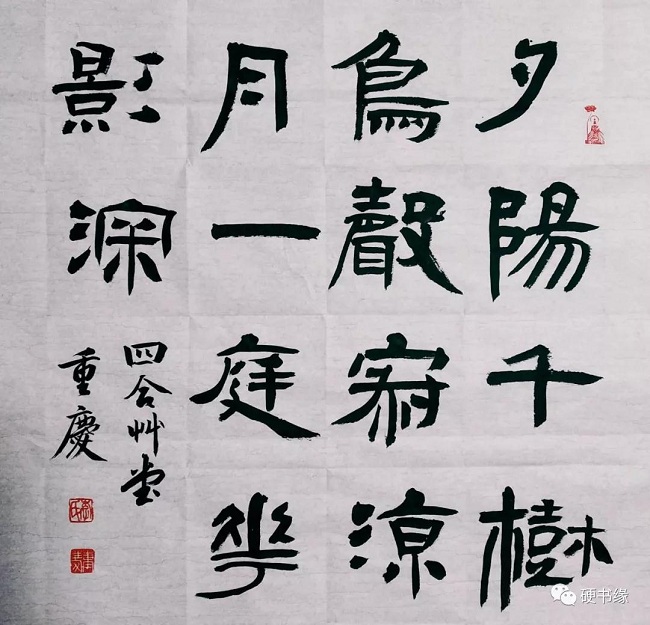 夕陽千樹
鳥聲寂涼
月一庭花
影深
四合艸堂
重慶
硬书缘